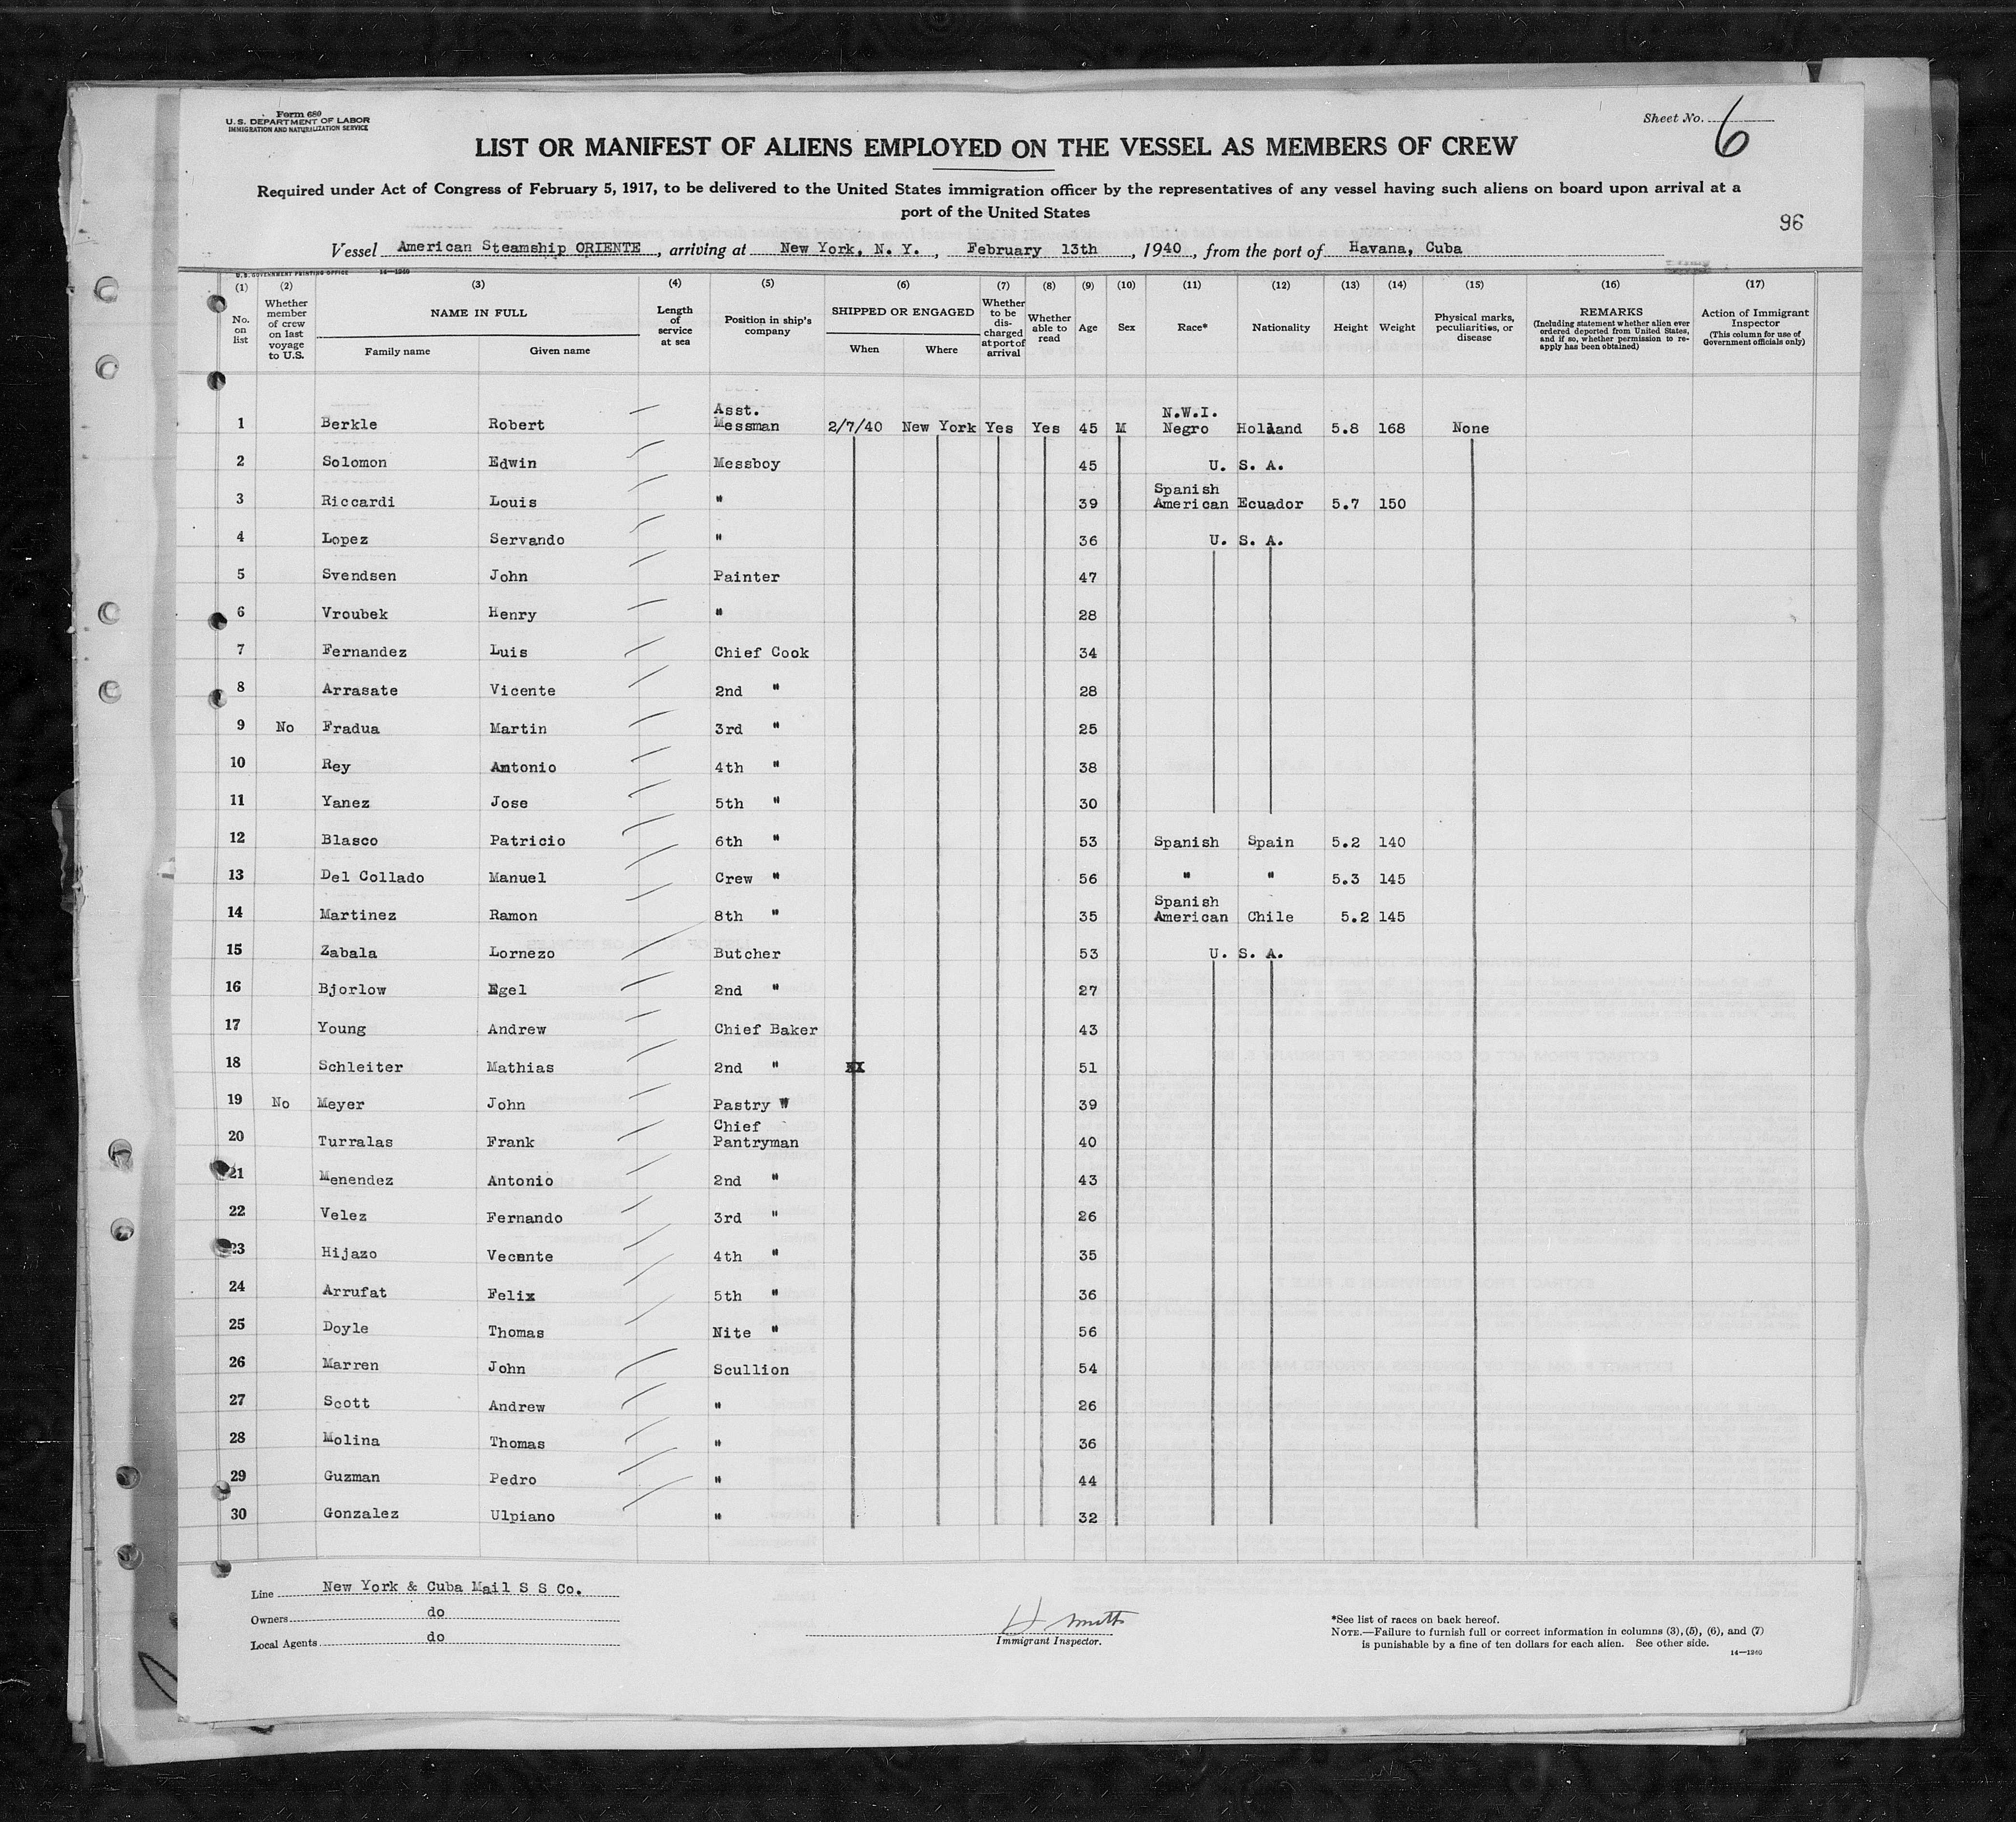 Form 680
U. S. DEPARTMENT OF LABOR
IMMIGRATION AND NATURALIZATION SERVICE
Sheet No. 6
LIST OR MANIFEST OF ALIENS EMPLOYED ON THE VESSEL AS MEMBERS OF CREW
Required under Act of Congress of February 5, 1917, to be delivered to the United States immigration officer by the representatives of any vessel having such aliens on board upon arrival at a
port of the United States
96
Vessel American Steamship ORIENTE, arriving at New York, N. Y., February 13th, 1940, from the port of Havana, Cuba
U. S. GOVERNMENT PRINTING OFFICE 14—1940
(1) (2) (3) (4) (5) (6) (7) (8) (9) (10) (11) (12) (13) (14) (15) (16) (17)
No. on list
Whether member of crew on last voyage to U.S.
NAME IN FULL
Family name Given name
Length of service at sea
Position in ship's company
SHIPPED OR ENGAGED
When Where
Whether to be discharged at port of arrival
Whether able to read
Age
Sex
Race*
Nationality
Height
Weight
Physical marks, peculiarities, or disease
REMARKS
(Including statement whether alien ever ordered deported from United States, and if so, whether permission to reapply has been obtained)
Action of Immigrant Inspector
(This column for use of Government officials only)
1 Berkle Robert Asst. Messman 2/7/40 New York Yes Yes 45 M N.W.I. Negro Holland 5.8 168 None
2 Solomon Edwin Messboy 45 U. S. A.
3 Riccardi Louis " 39 Spanish American Ecuador 5.7 150
4 Lopez Servando " 36 U. S. A.
5 Svendsen John Painter 47
6 Vroubek Henry " 28
7 Fernandez Luis Chief Cook 34
8 Arrasate Vicente 2nd " 28
9 No Fradua Martin 3rd " 25
10 Rey Antonio 4th " 38
11 Yanez Jose 5th " 30
12 Blasco Patricio 6th " 53 Spanish Spain 5.2 140
13 Del Collado Manuel Crew " 56 " " 5.3 145
14 Martinez Ramon 8th " 35 Spanish American Chile 5.2 145
15 Zabala Lornezo Butcher 53 U. S. A.
16 Bjorlow Egel 2nd " 27
17 Young Andrew Chief Baker 43
18 Schleiter Mathias 2nd " 51
19 No Meyer John Pastry " 39
20 Turralas Frank Chief Pantryman 40
21 Menendez Antonio 2nd " 43
22 Velez Fernando 3rd " 26
23 Hijazo Vecente 4th " 35
24 Arrufat Felix 5th " 36
25 Doyle Thomas Nite " 56
26 Marren John Scullion 54
27 Scott Andrew " 26
28 Molina Thomas " 36
29 Guzman Pedro " 44
30 Gonzalez Ulpiano " 32
Line New York & Cuba Mail S S Co.
Owners do
Local Agents do
Immigrant Inspector.
*See list of races on back hereof.
NOTE.—Failure to furnish full or correct information in columns (3), (5), (6), and (7)
is punishable by a fine of ten dollars for each alien. See other side.
14—1940